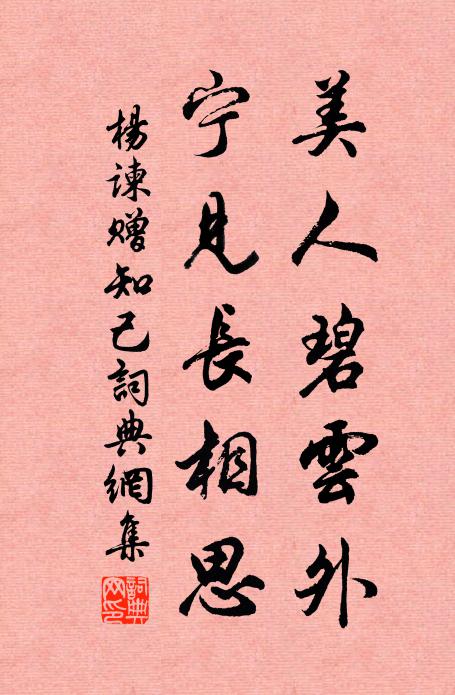 美人碧雲外
宁見長相思
楊諫赠知己詞典網集
詞典網印